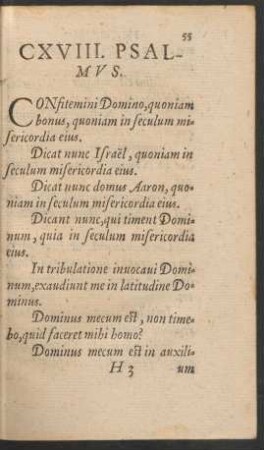 55
CXVIII. PSAL-
MVS.
CONfitemini Domino, quoniam
bonus, quoniam in seculum mi-
sericordia eius.
Dicat nunc Israël, quoniam in
seculum misericordia eius.
Dicat nunc domus Aaron, quo-
niam in seculum misericordia eius.
Dicant nunc, qui timent Domi-
num, quia in seculum misericordia
eius.
In tribulatione inuocaui Domi-
num, exaudiunt me in latitudine Do-
minus.
Dominus mecum est, non time-
bo, quid faceret mihi homo?
Dominus mecum est in auxili-
H 3 um